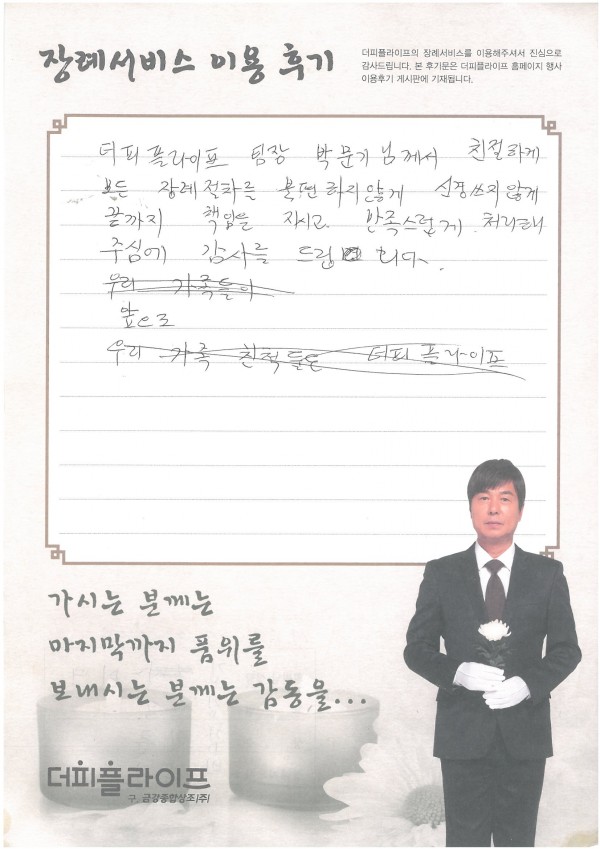 장례서비스 이용 후기
더피플라이프의 장례서비스를 이용해주셔서 진심으로
감사드립니다. 본 후기문은 더피플라이프 홈페이지 행사
이용후기 게시판에 기재됩니다.
더피플라이프 팀장 박문기님께서 친절하게
모든 장례절차를 불편하지않게 신경쓰지않게
끝까지 책임을 지시고 만족스럽게 처리해
주심에 감사를 드립 니다.
우리 가족들이
앞으로
우리 가족 친척들도 더피플라이프
가시는 분께는
마지막까지 품위를
보내시는 분께는 감동을...
더피플라이프
구. 금강종합상조(주)